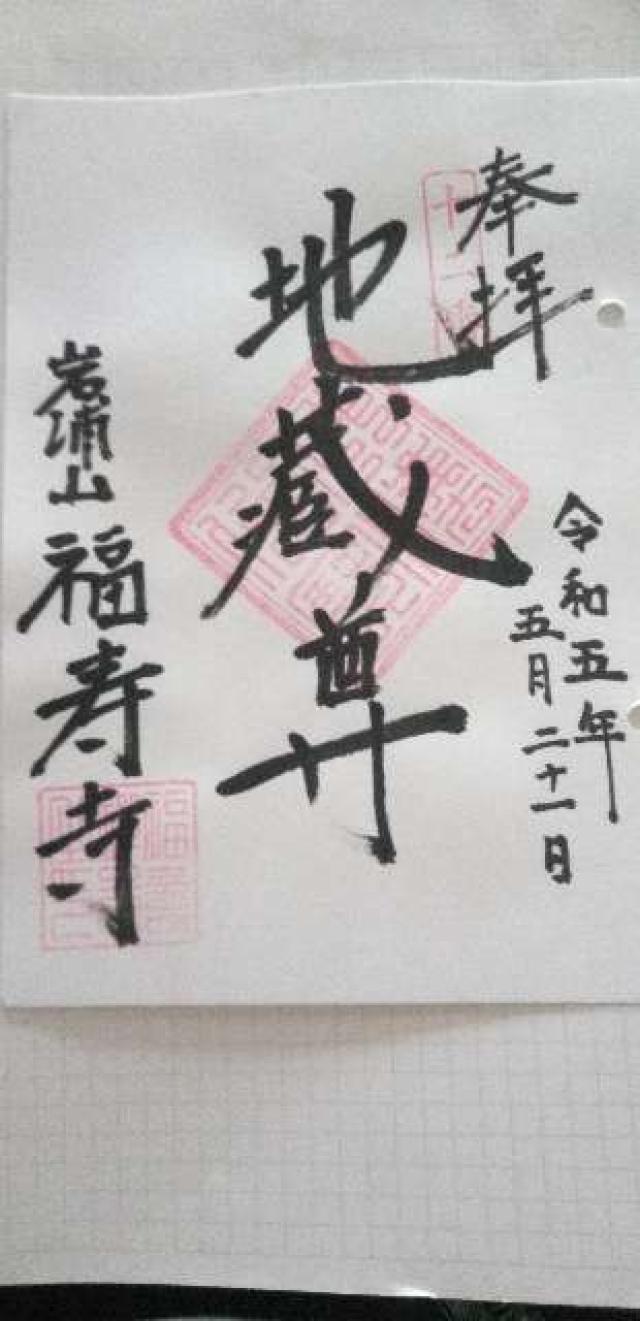 奉拝
令和五年
五月二十一日
地蔵尊
岩浦山 福寿寺